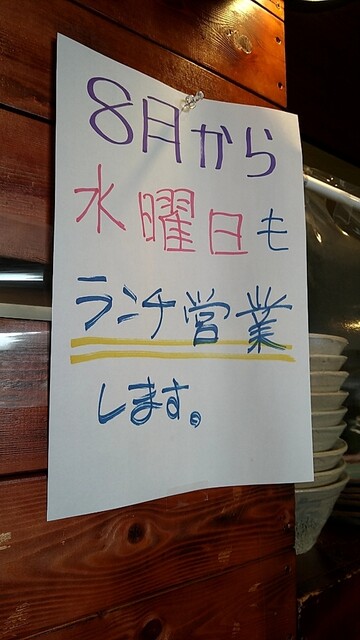 8月から
水曜日も
ランチ営業
します。